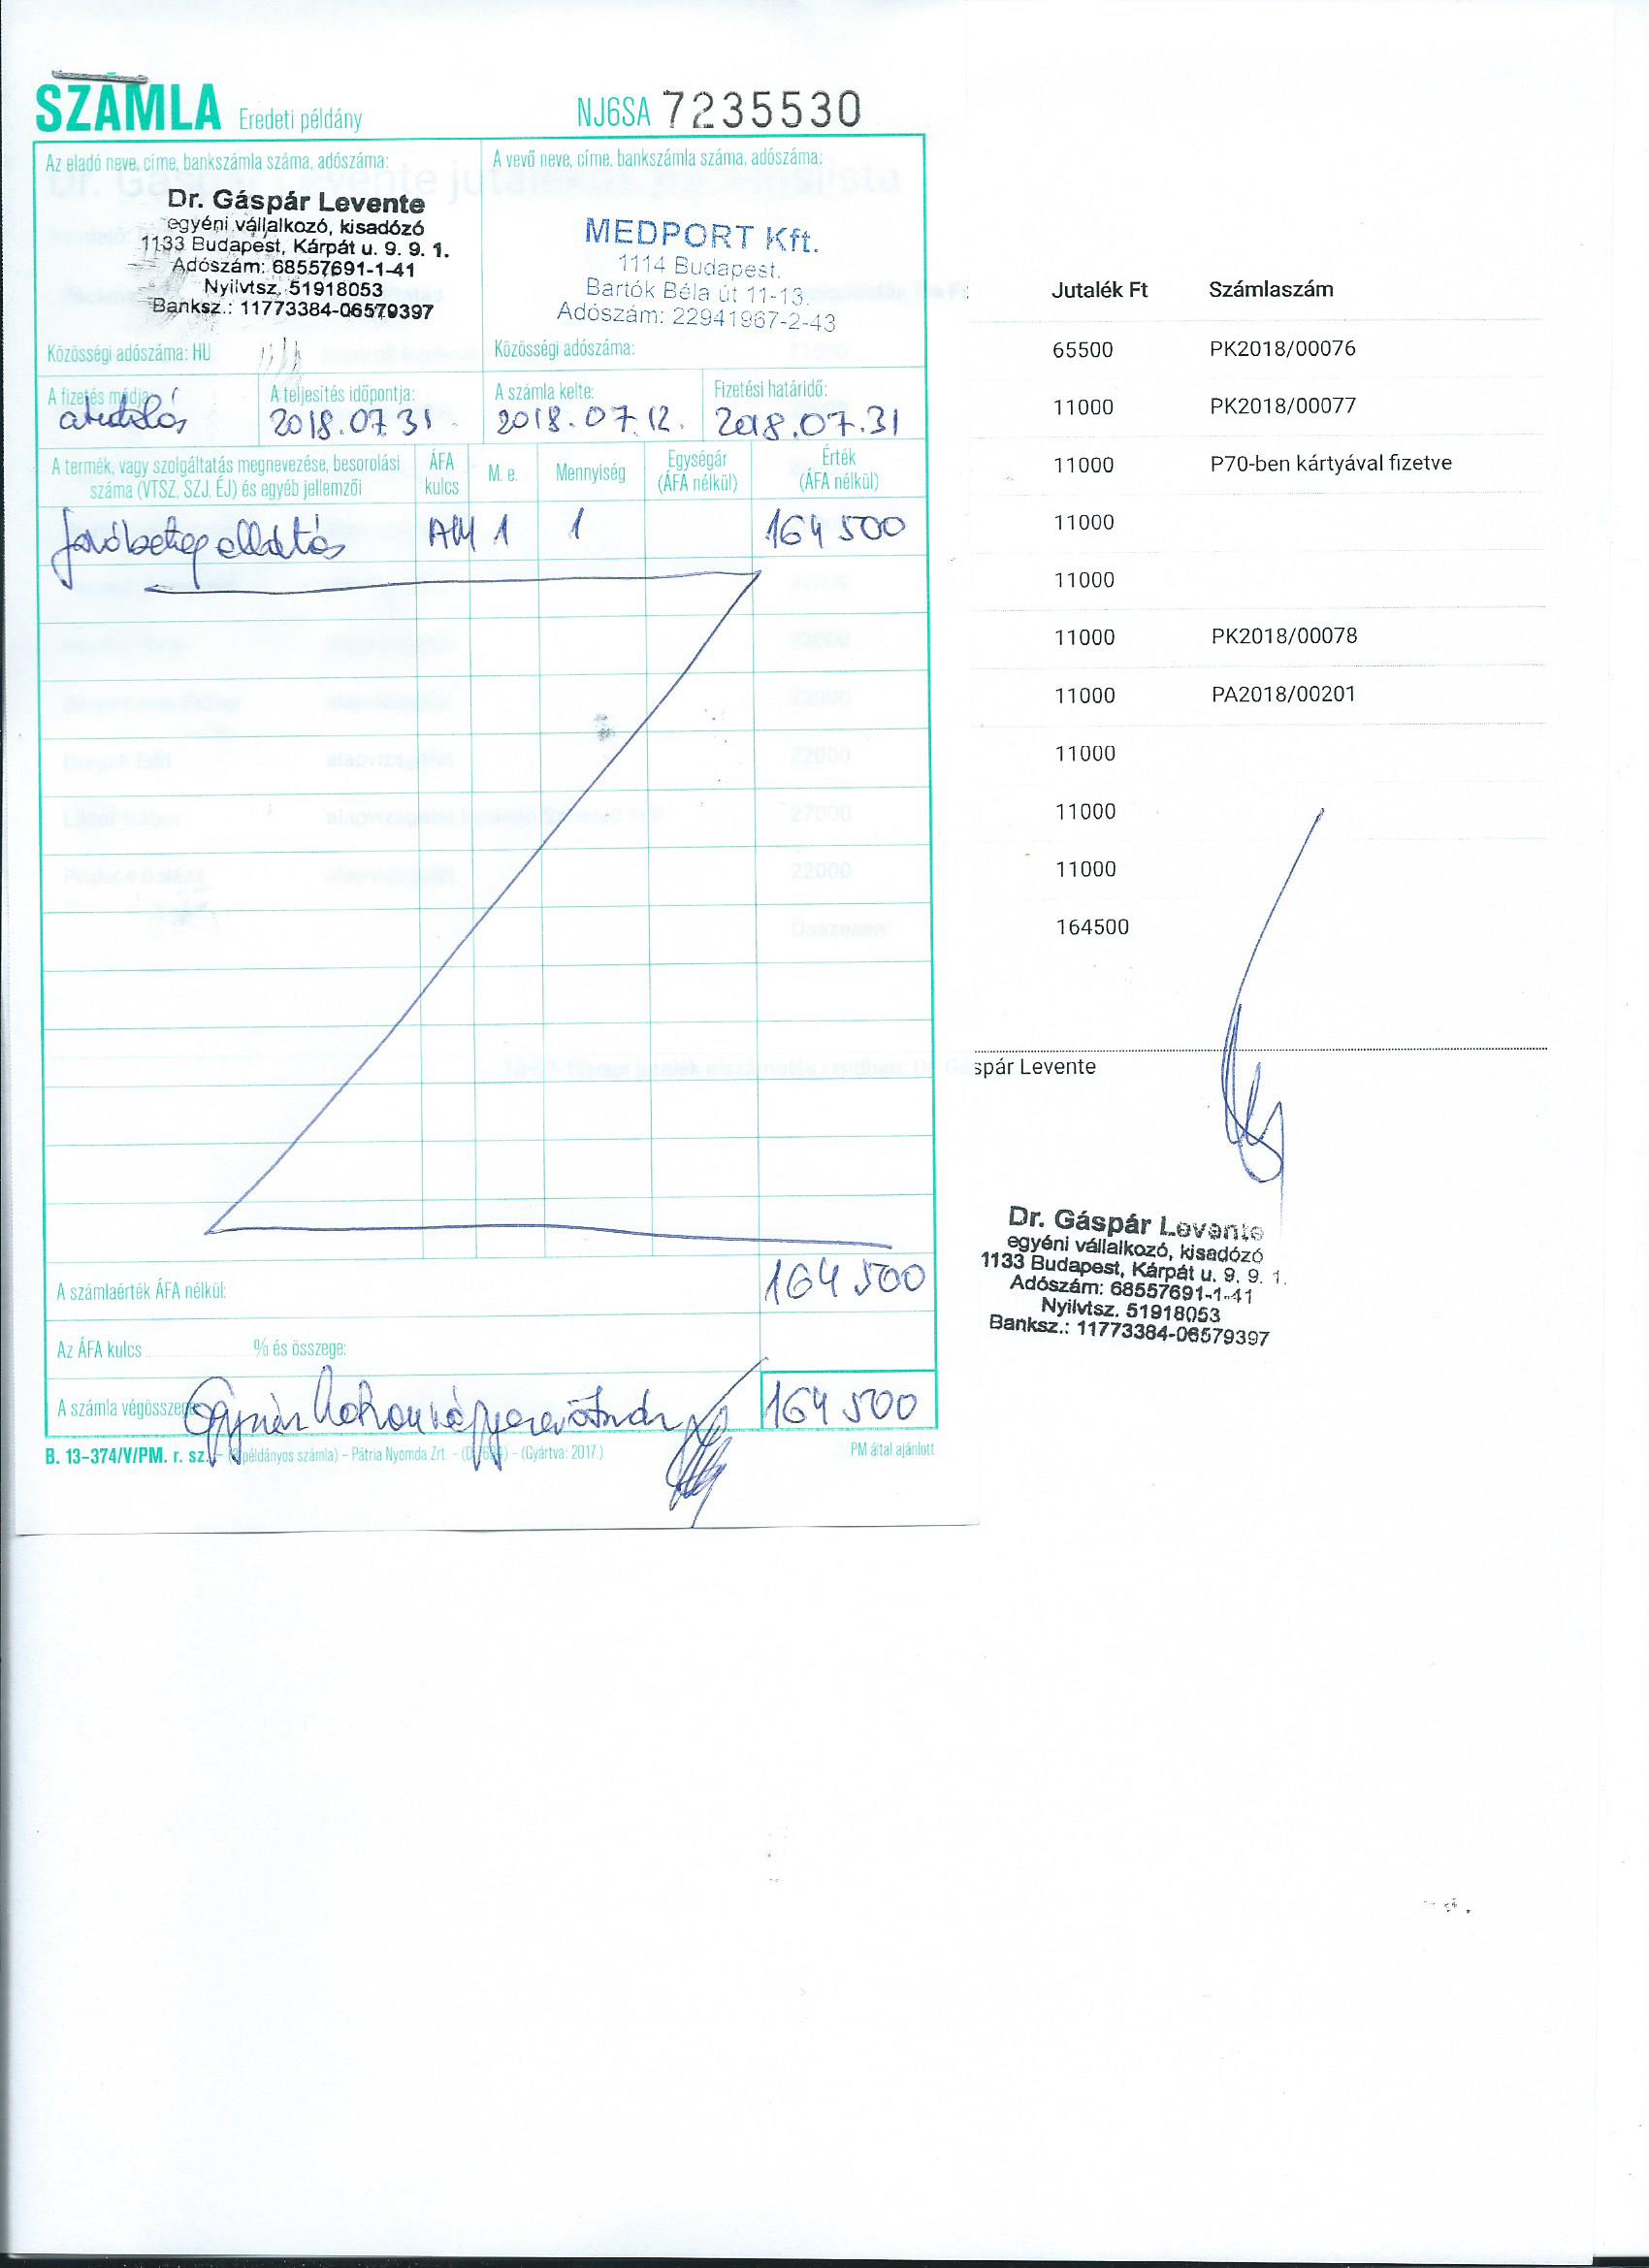 SZÁMLA Eredeti példány NJ6SA 7235530
Az eladó neve, címe, bankszámla száma, adószáma:
Dr. Gáspár Levente
egyéni vállalkozó, kisadózó
1133 Budapest, Kárpát u. 9. 9. 1.
Adószám: 68557691-1-41
Nyilvtsz. 51918053
Banksz.: 11773384-06579397
Közösségi adószáma: HU
A vevő neve, címe, bankszámla száma, adószáma:
MEDPORT Kft.
1114 Budapest,
Bartók Béla út 11-13.
Adószám: 22941967-2-43
Közösségi adószáma:
A fizetés módja:
átutalás
A teljesítés időpontja:
2018.07.31.
A számla kelte:
2018.07.12.
Fizetési határidő:
2018.07.31
A termék, vagy szolgáltatás megnevezése, besorolási
száma (VTSZ, SZJ, ÉJ) és egyéb jellemzői
ÁFA
kulcs
M. e.
Mennyiség
Egységár
(ÁFA nélkül)
Érték
(ÁFA nélkül)
járóbeteg ellátás AM 1 1 164 500
A számlaérték ÁFA nélkül: 164 500
Az ÁFA kulcs % és összege:
A számla végösszege: 164 500
B. 13-374/V/PM. r. sz. – (3 példányos számla) – Pátria Nyomda Zrt. – – (Gyártva: 2017.) PM által ajánlott
Jutalék Ft Számlaszám
65500 PK2018/00076
11000 PK2018/00077
11000 P70-ben kártyával fizetve
11000
11000
11000 PK2018/00078
11000 PA2018/00201
11000
11000
11000
164500
spár Levente
Dr. Gáspár Levente
egyéni vállalkozó, kisadózó
1133 Budapest, Kárpát u. 9. 9. 1.
Adószám: 68557691-1-41
Nyilvtsz. 51918053
Banksz.: 11773384-06579397